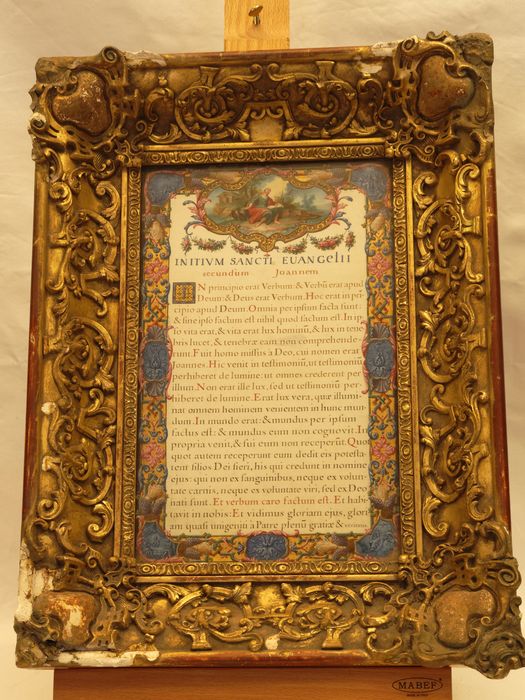 INITIUM SANCTI EUANGELII
secundum Joannem
IN principio erat Verbum: & Verbũ erat apud
Deum: & Deus erat Verbum. Hoc erat in pri-
cipio apud Deum. Omnia per ipsum facta sunt:
& sine ipso factum est nihil quod factum est. In ip-
so vita erat, & vita erat lux hominũ, & lux in tene-
bris lucet, & tenebræ eam non comprehende-
runt. Fuit homo missus a Deo, cui nomen erat
Joannes. Hic venit in testimoniũ, ut testimoniũ
perhiberet de lumine: ut omnes crederent per
illum. Non erat ille lux, sed ut testimoniũ per-
hiberet de lumine. Erat lux vera, quæ illumi-
nat omnem hominem venientem in hunc mun-
dum. In mundo erat: & mundus per ipsum
factus est: & mundus eum non cognovit. In
propria venit, & sui eum non receperũt. Quot-
quot autem receperunt eum dedit eis potesta-
tem filios Dei fieri, his qui credunt in nomine
ejus: qui non ex sanguinibus, neque ex volun-
tate carnis, neque ex voluntate viri, sed ex Deo
nati sunt. Et verbum caro factum est. Et habi-
tavit in nobis: Et vidimus gloriam ejus, glori-
am quasi unigeniti a Patre plenũ gratiæ & veritatis.
MABEF